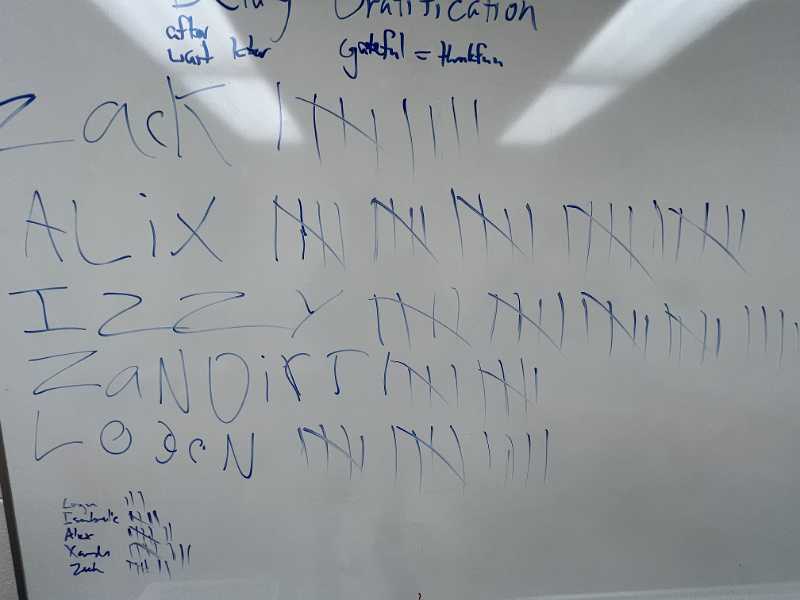 Delay Gratification
after
want later grateful = thankful
Zack
ALiX
IZZY
ZaNDirT
LOgaN
Logan
Isabelle
Alex
Xander
Zack